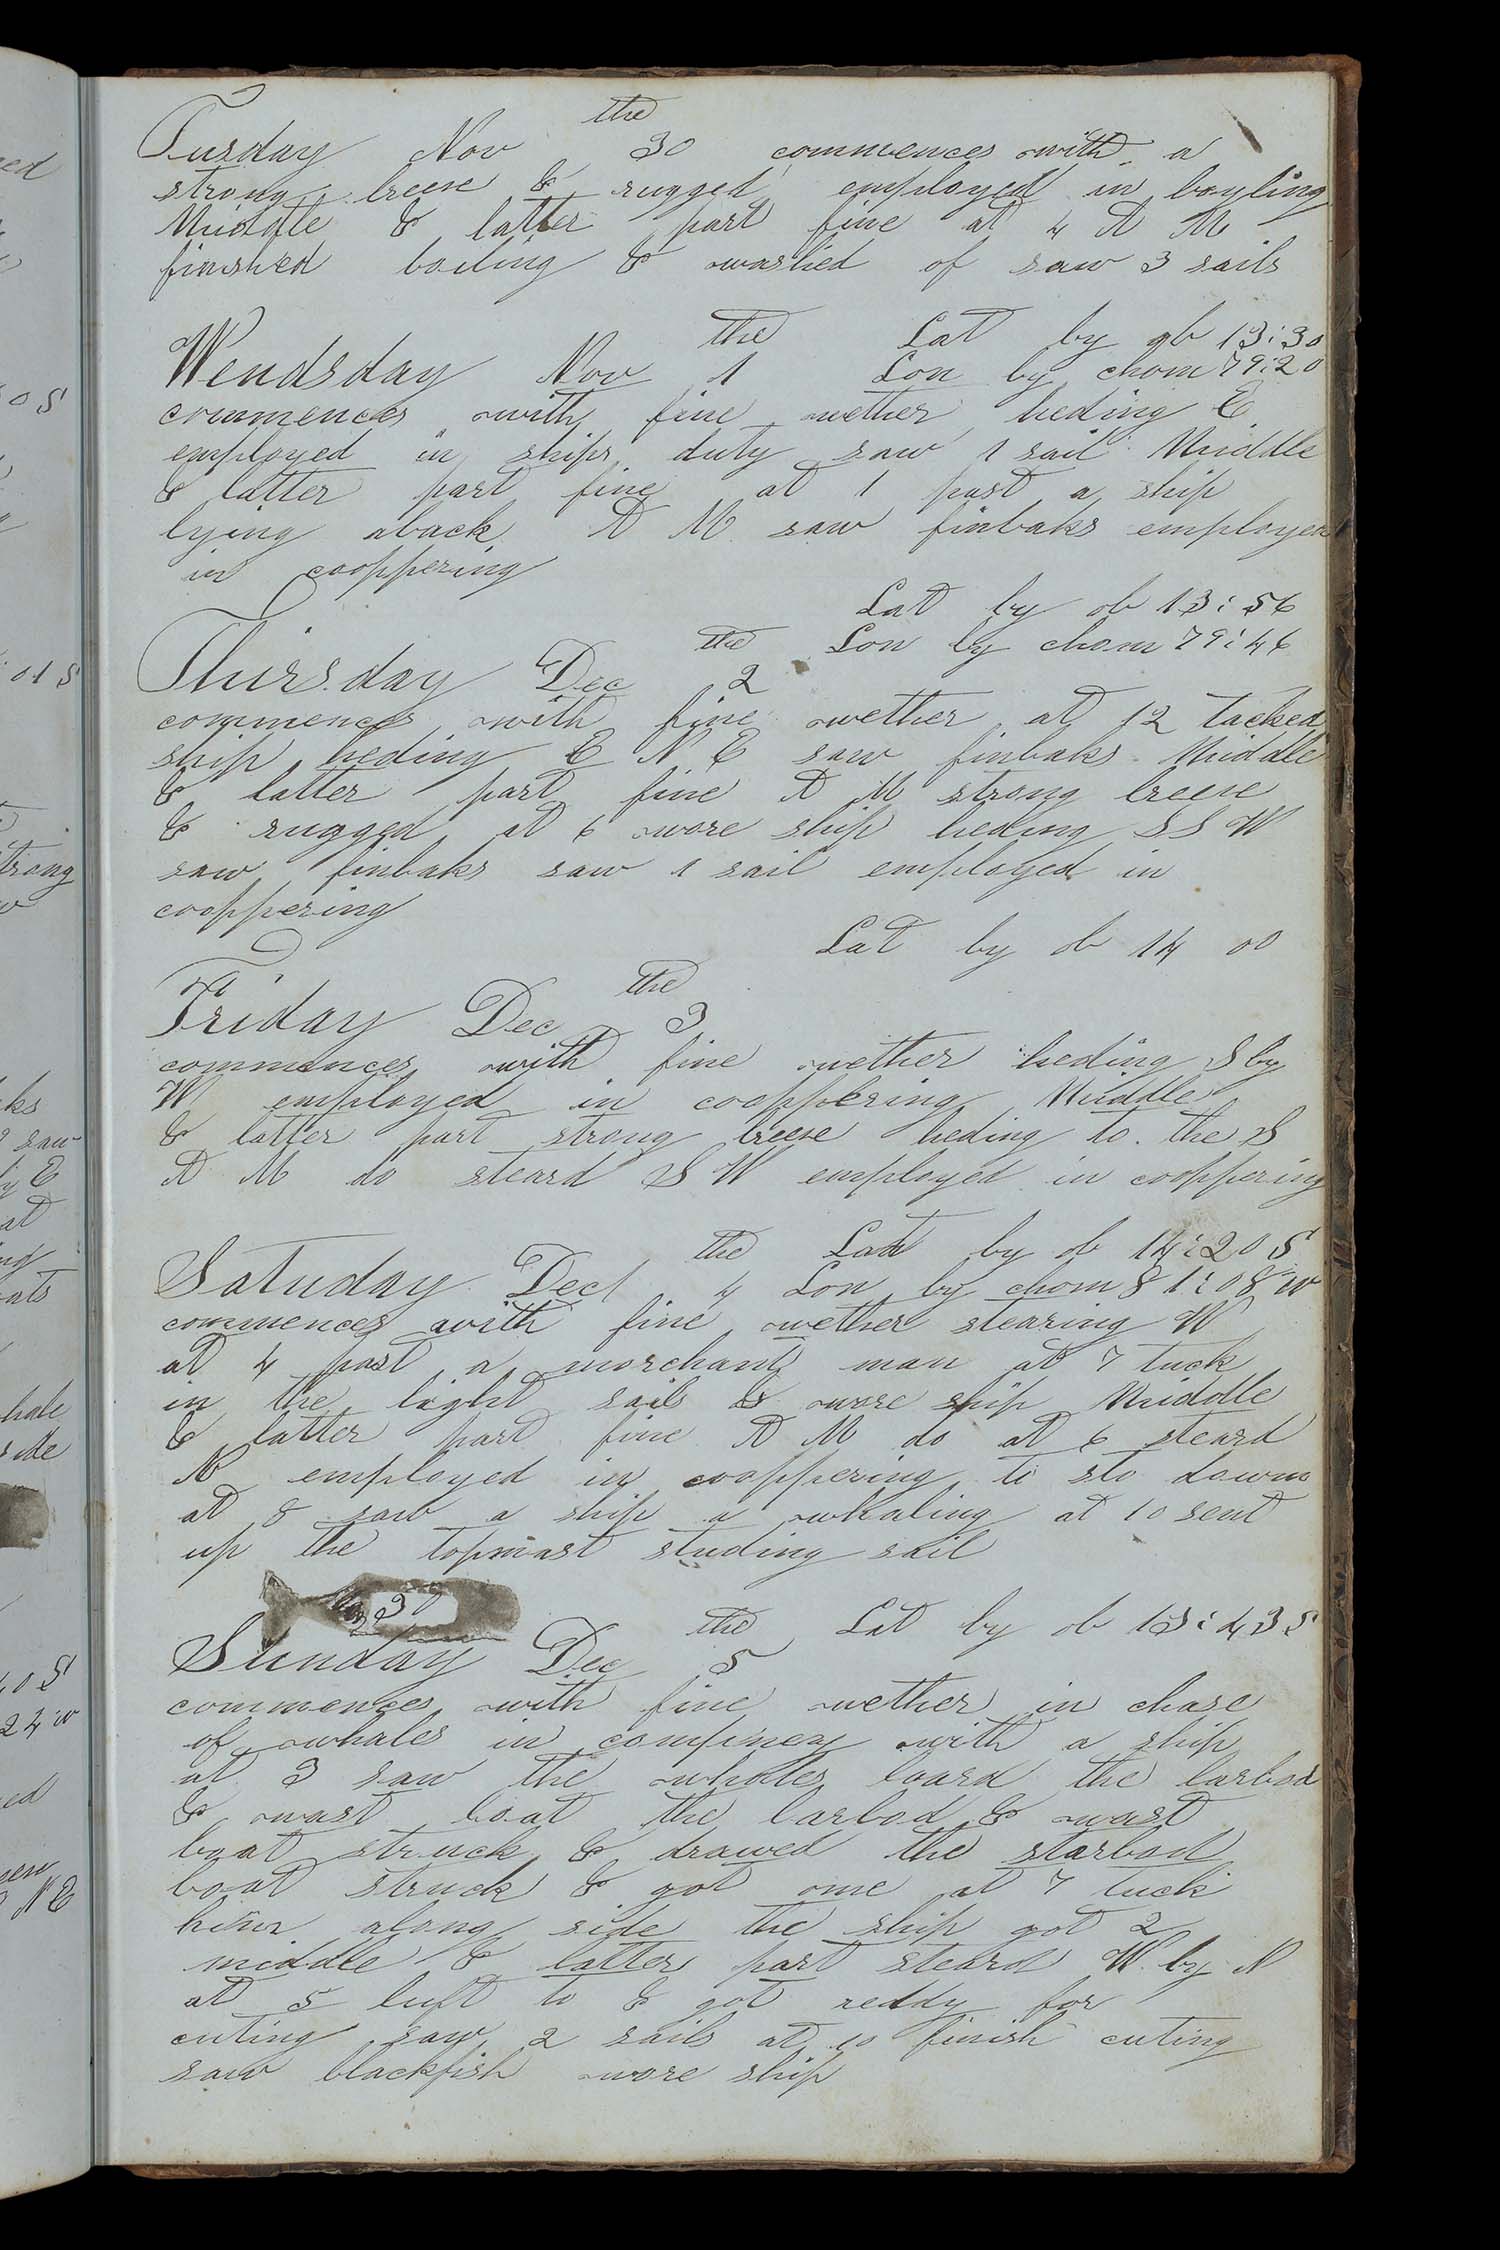 Tusday Nov the 30 commences with a
strong breese & rugged employed in boyling
Middle & latter part fine at 4 A M
finished boiling & washed of saw 3 sails
the Lat by ob 13:30
Wendsday Nov 1 Lon by chom 79:20
commences with fine wether heding E
employed in ships duty saw 1 sail Middle
& latter part fine at 1 past a ship
lying aback A M saw finbaks employed
in cooppering
Lat by ob 13:56
the Lon by chom 79:46
Thirsday Dec 2
commences with fine wether at 12 tacked
ship heding E N E saw finbaks Middle
& latter part fine A M strong breese
& rugged at 6 wore ship heding S S W
saw finbaks saw 1 sail employed in
cooppering
Lat by ob 14 00
Friday Dec the 3
commences with fine wether heding S by
W employed in cooppering Middle
& latter part strong breese heding to the S
A M do steard S W employed in cooppering
the Lat by ob 14:20 S
Satuday Dec 4 Lon by chom 81:08 w
commences with fine wether stearing W
at 4 past a morchant man at 7 tuck
in the light sails & wore ship Middle
& latter part fine A M do at 6 steard
N employed in cooppering to sto down
at 8 saw a ship a whaling at 10 sent
up the topmast studing sail
30
the Lat by ob 13:43 S
Sunday Dec 5
commences with fine wether in chase
of whales in compiney with a ship
at 3 saw the whales loard the larbod
& wast boat the larbod & wast
boat struck & drawed the starbod
boat struck & got one at 7 tuck
him along side the ship got 2
middle & latter part steard W by N
at 5 luft to & got reddy for
cuting saw 2 sails at 10 finish cuting
saw blackfish wore ship